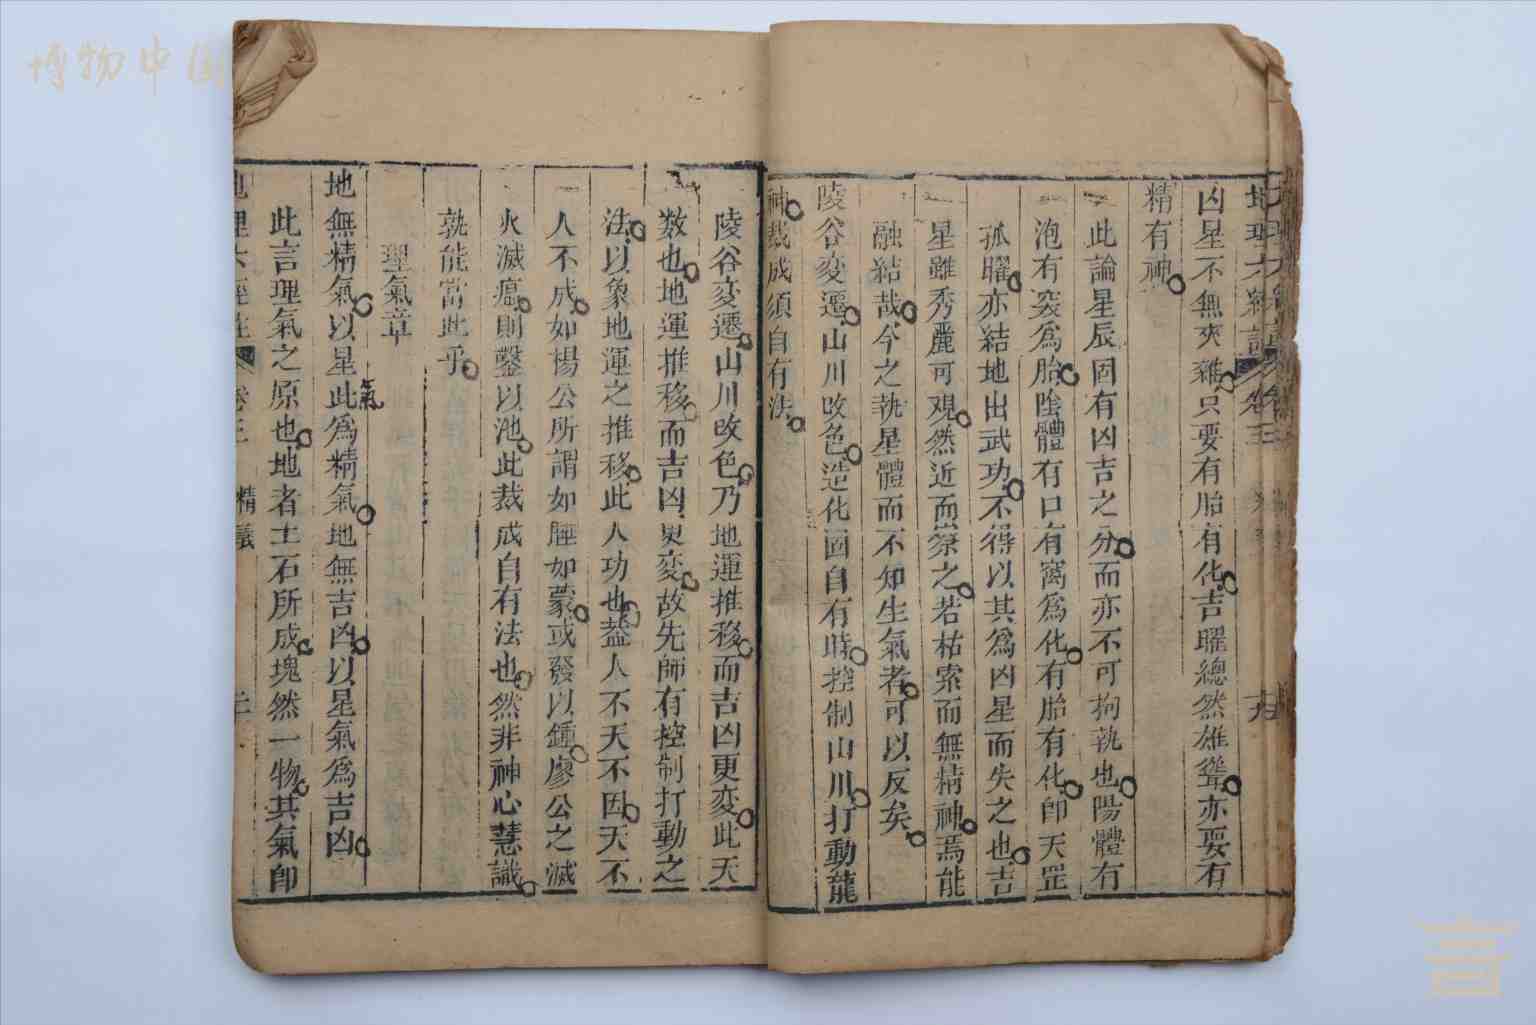 博物中国
地理六經註 卷三 十九
凶星不無夾雜只要有胎有化吉曜總然雄聳亦要有
精有神
此論星辰固有凶吉之分而亦不可拘執也陽體有
泡有突為胎陰體有口有窩為化有胎有化卽天罡
孤曜亦結地出武功不得以其為凶星而失之也吉
星雖秀麗可观然近而察之若枯索而無精神焉能
融結哉今之執星體而不知生氣者可以反矣
陵谷変遷山川改色造化固自有時控制山川打動龍
神裁成須自有法
陵谷変遷山川改色乃地運推移而吉凶更変此天
数也地運推移而吉凶更变故先師有控制打動之
法以象地運之推移此人功也蓋人不天不因天不
人不成如楊公所謂如腫如蒙或發以鍾廖公之滅
火滅瘟則鑿以池此裁成自有法也然非神心慧識
孰能當此乎
理氣章
地無精氣以星氣此為精氣地無吉凶以星氣為吉凶
此言理氣之原也地者土石所成塊然一物其氣卽
地理六經註 卷三 精義